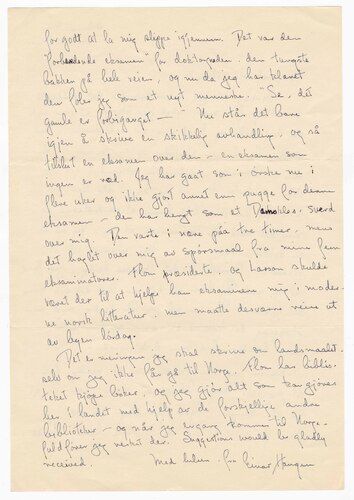 for godt at la mig slippe igjennem. Det var den
forberedende eksamen for doktorgraden, den tyngste
bakken på hele veien, og nu da jeg har klaret
den føler jeg som et nytt menneske. "Se, det
gamle er forbiganget —" Nu står det bare
igjen å skrive en skikkelig avhandling, og så
tilslut en eksamen over den – en eksamen som
ingen er ræd. Jeg har gaat som i ørske nu i
flere uker og ikke gjort annet enn pugge for denne
eksamen – den har hengt som et Damokles-sverd
over mig. Den varte i nære paa tre timer, mens
det haglet over mig av spørsmaal fra mine fem
eksaminatorer. Flom presiderte, og Larson skulde
været der til at hjelpe han eksaminere mig i moder-
ne norsk litteratur, men maatte desværre reise ut
av byen lørdag.
Det er meningen jeg skal skrive om landsmaalet
selv om jeg ikke får gå til Norge. Flom har biblio-
teket kjøpe bøker, og jeg gjør alt som kan gjøres
her i landet med hjelp av de forskjellige andre
biblioteker – og når jeg engang kommer til Norge
fuldfører jeg verket der. Suggestions would be gladly
received.
Med hilsen fra Einar Haugen